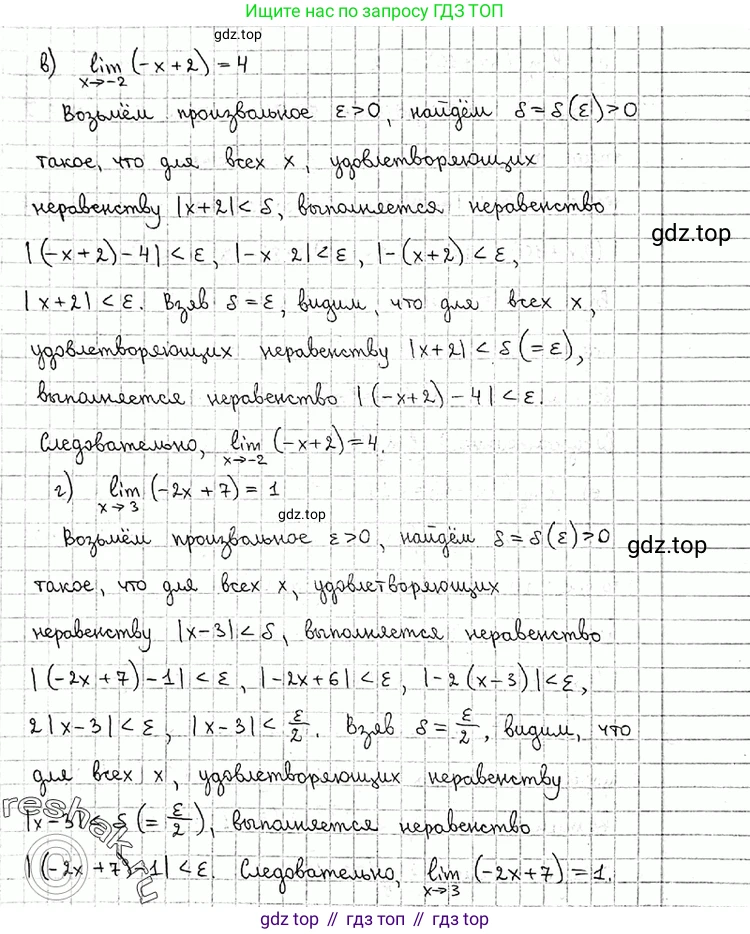 Ищите нас по запросу ГДЗ ТОП
gdz.top
в) lim x→-2 (-x+2) = 4
Возьмём произвольное ε>0, найдём δ=δ(ε)>0
такое, что для всех x, удовлетворяющих
неравенству |x+2|<δ, выполняется неравенство
gdz.top
|(-x+2)-4|<ε, |-x 2|<ε, |-(x+2)<ε,
|x+2|<ε. Взяв δ=ε, видим, что для всех x,
удовлетворяющих неравенству |x+2|<δ(=ε),
выполняется неравенство |(-x+2)-4|<ε.
Следовательно, lim x→-2 (-x+2)=4.
г) lim x→3 (-2x+7) = 1
gdz.top
Возьмём произвольное ε>0, найдём δ=δ(ε)>0
gdz.top
такое, что для всех x, удовлетворяющих
неравенству |x-3|<δ, выполняется неравенство
|(-2x+7)-1|<ε, |-2x+6|<ε, |-2(x-3)|<ε,
2|x-3|<ε, |x-3|<ε/2. Взяв δ=ε/2, видим, что
для всех x, удовлетворяющих неравенству
|x-3|<δ(=ε/2), выполняется неравенство
|(-2x+7)-1|<ε. Следовательно, lim x→3 (-2x+7)=1.
reshak.ru
gdz top // гдз топ // gdz top